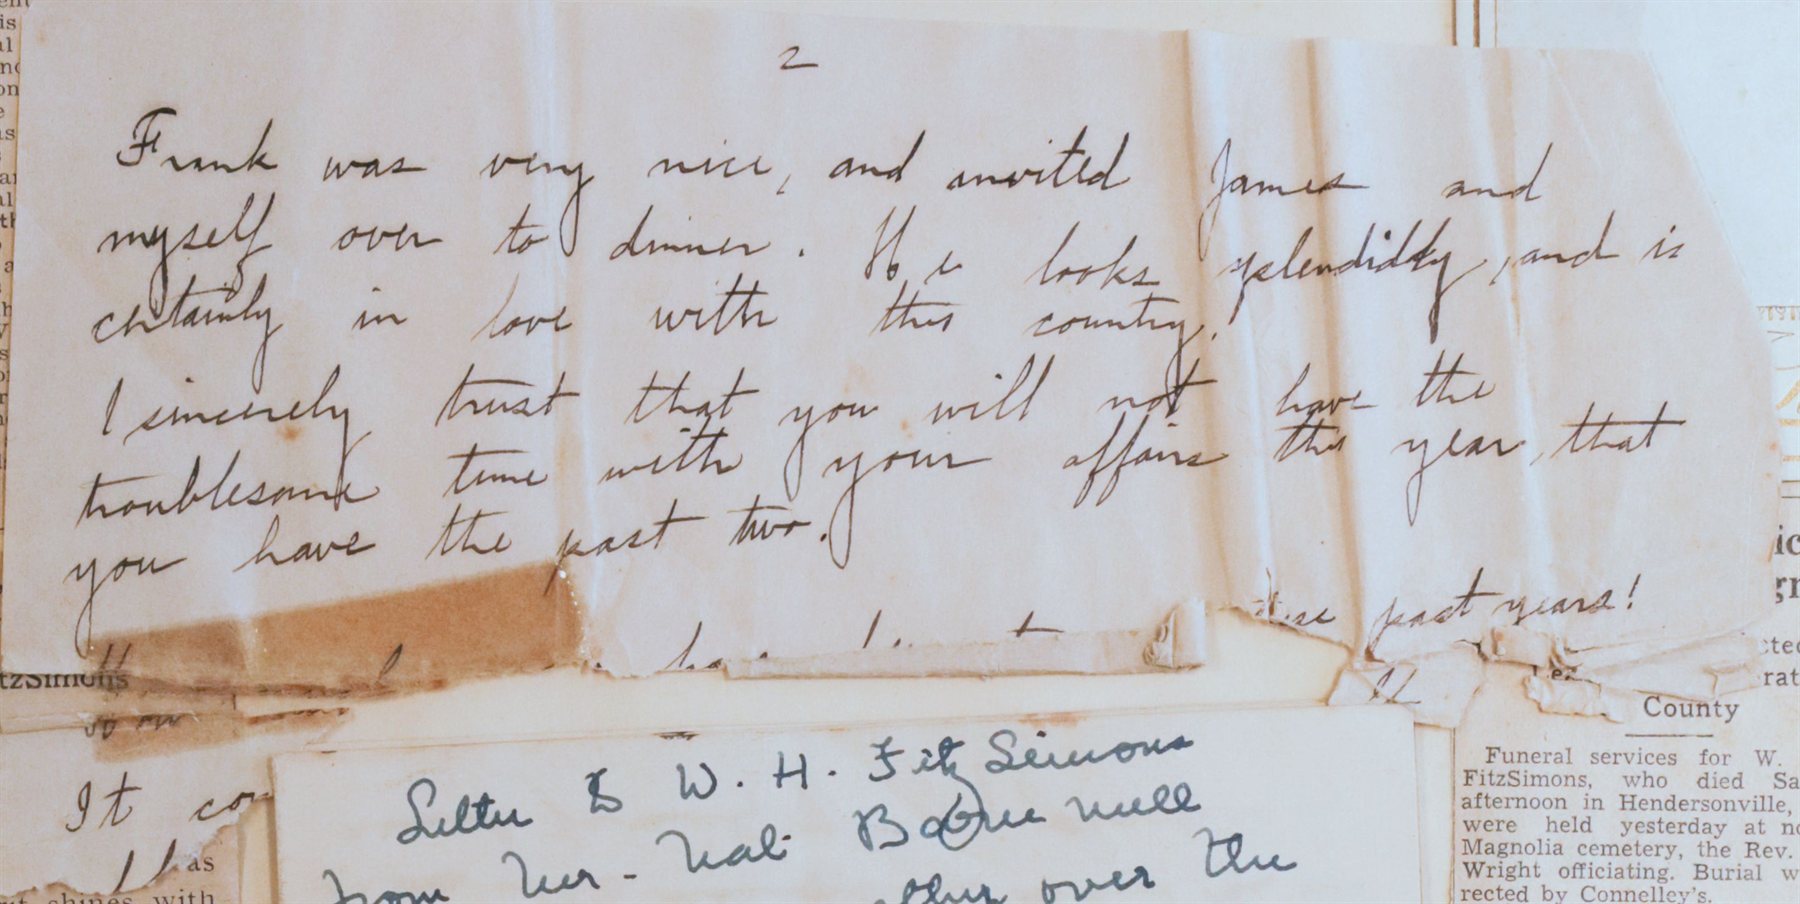 2
Frank was very nice, and invited James and
myself over to dinner. He looks splendidly, and is
certainly in love with this country.
I sincerely trust that you will not have the
troublesome time with your affairs this year, that
you have the past two.
past years!
tzSimons
It
as
shines with
Letter to W. H. FitzSimons
from Mr. Nat
over the
County
Funeral services for W.
FitzSimons, who died Sa
afternoon in Hendersonville,
were held yesterday at no
Magnolia cemetery, the Rev.
Wright officiating. Burial w
rected by Connelley's.